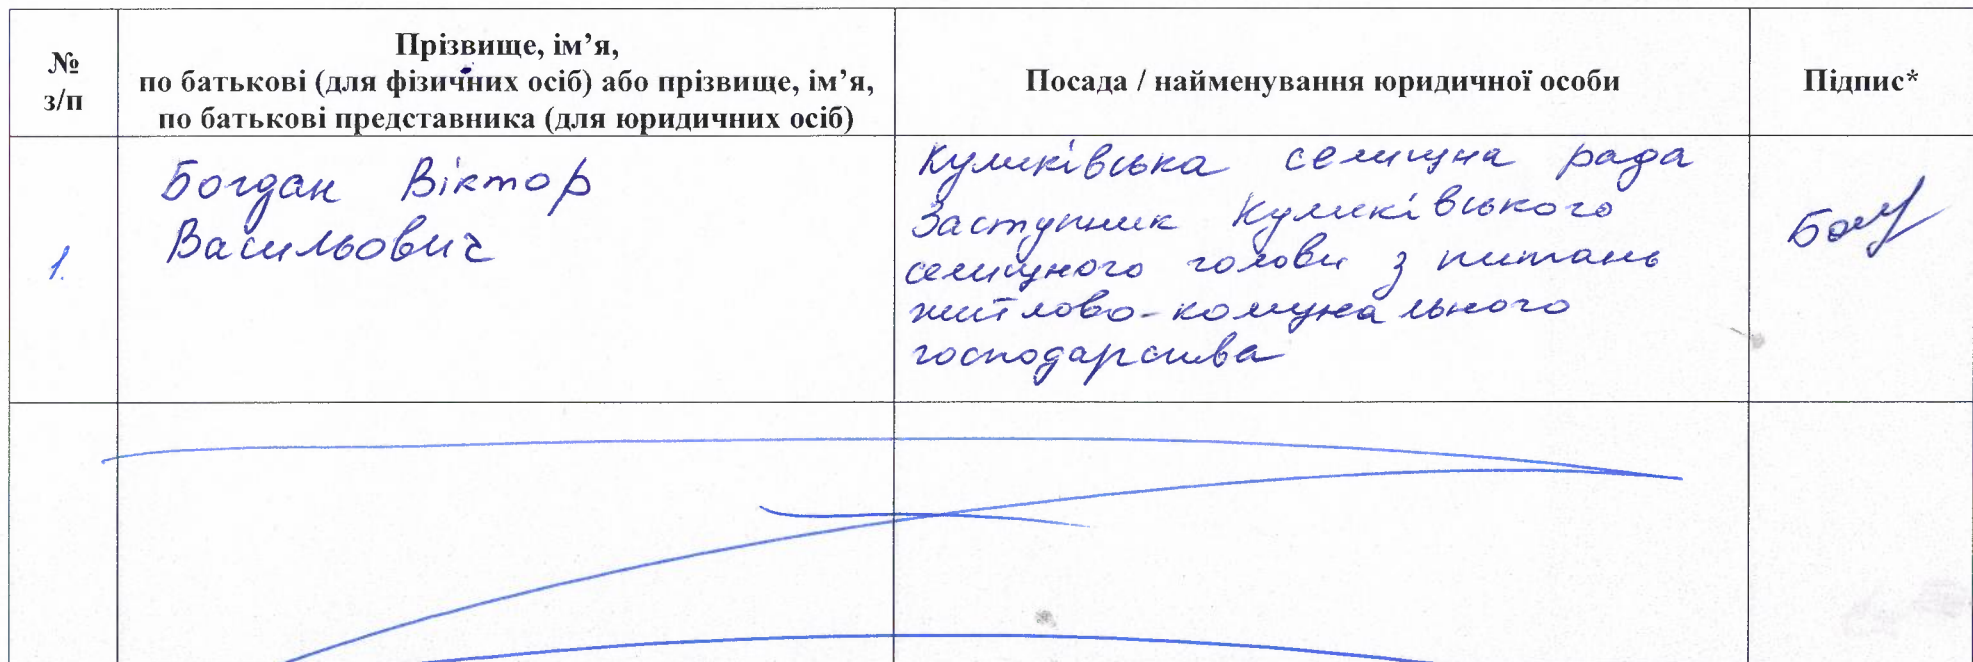 №
з/п
Прізвище, ім’я,
по батькові (для фізичних осіб) або прізвище, ім’я,
по батькові представника (для юридичних осіб)
Посада / найменування юридичної особи
Підпис*
1.
Богдан Віктор
Васильович
Куликівська селищна рада
Заступник Куликівського
селищного голови з питань
житлово-комунального
господарства